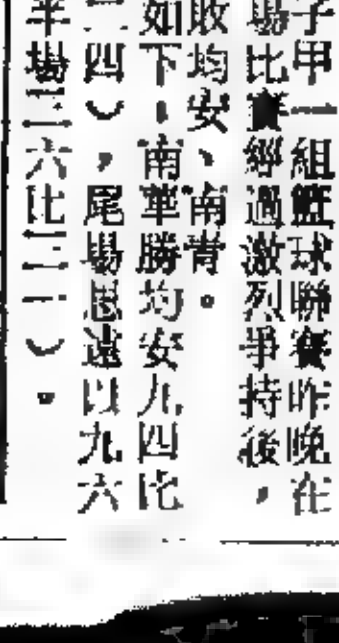 子甲一組籃球聯賽昨晚在
場比賽經過激烈爭持後，
敗均安、南青。
如下：南華勝均安九四比
二四），尾場思遠以九六
半場三六比三一）。